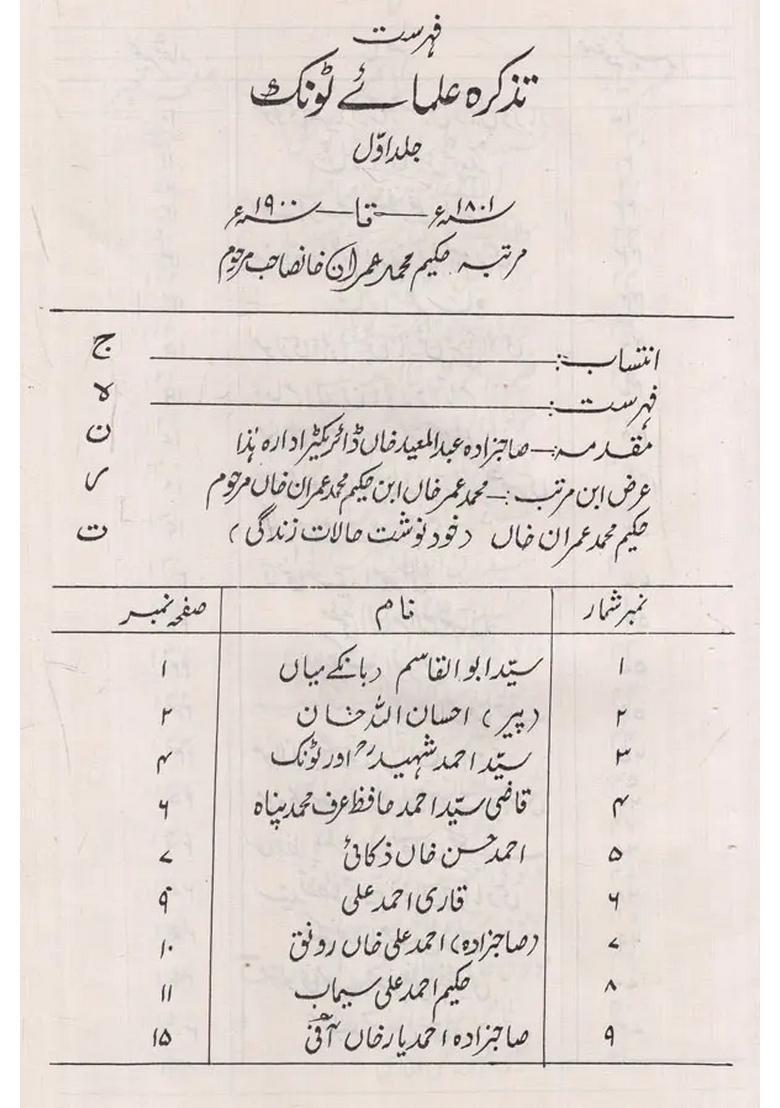 فہرست
تذکرہ علمائے ٹونک
جلد اوّل
۱۸۰۱ء تا ۱۹۰۰ء
مرتبہ حکیم محمد عمران خانصاحب مرحوم
انتساب:— ج
فہرست:— ہ
مقدمہ:— صاحبزادہ عبدالمعید خاں ڈائریکٹر ادارہ ہٰذا ن
عرض ابن مرتب:— محمد عمر خاں ابن حکیم محمد عمران خاں مرحوم ر
حکیم محمد عمران خاں (خود نوشت حالات زندگی) ت
نمبر شمار نام صفحہ نمبر
۱ سیّد ابوالقاسم (بانکے میاں ۱
۲ (پیر) احسان اللہ خان ۲
۳ سیّد احمد شہیدؒ اور ٹونک ۴
۴ قاضی سیّد احمد حافظ عرف محمد پناہ ۶
۵ احمد حسن خاں ذکائی ۷
۶ قاری احمد علی ۹
۷ (صاحبزادہ) احمد علی خاں رونق ۱۰
۸ حکیم احمد علی سیماب ۱۱
۹ صاحبزادہ احمد یار خاں ۱۵